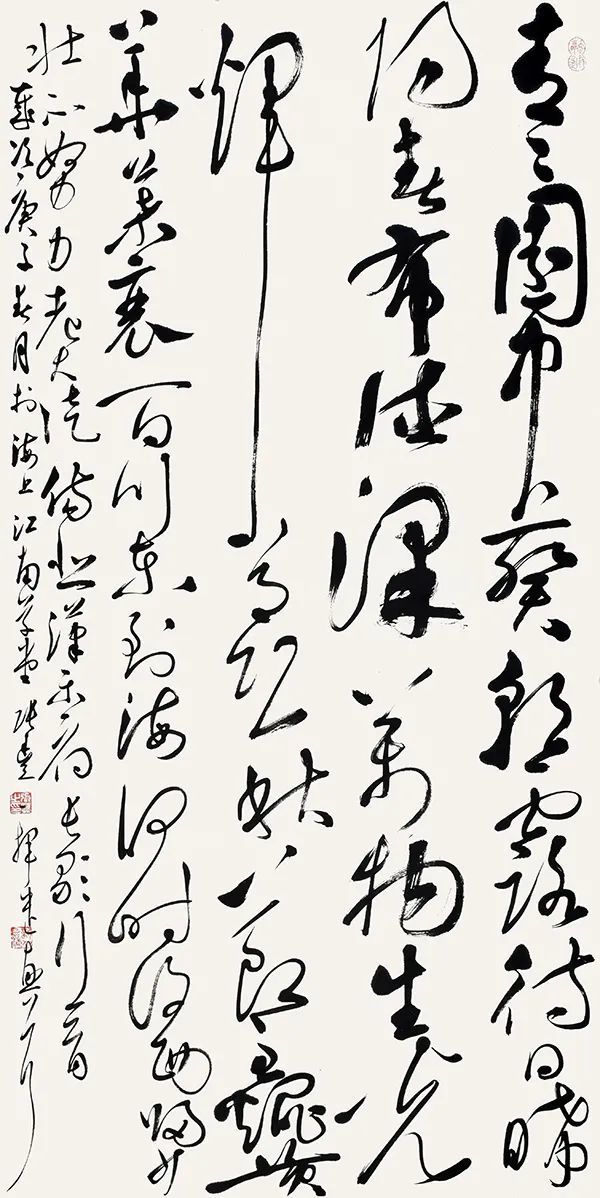 青々園中葵朝露待日晞
陽春布德澤萬物生光
輝常恐秋節至焜黃
華葉衰百川東到海何時復西歸少
壯不努力老大徒傷悲漢樂府長歌行一首
歲次庚子春月於海上江南草堂